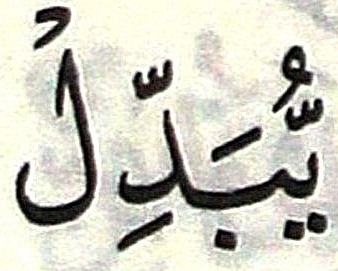 يُّبَدِّلْ